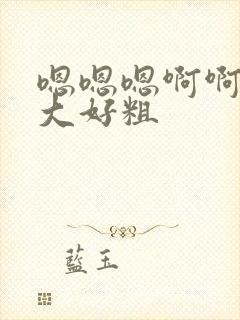 嗯嗯嗯啊啊
大好粗
藍玉